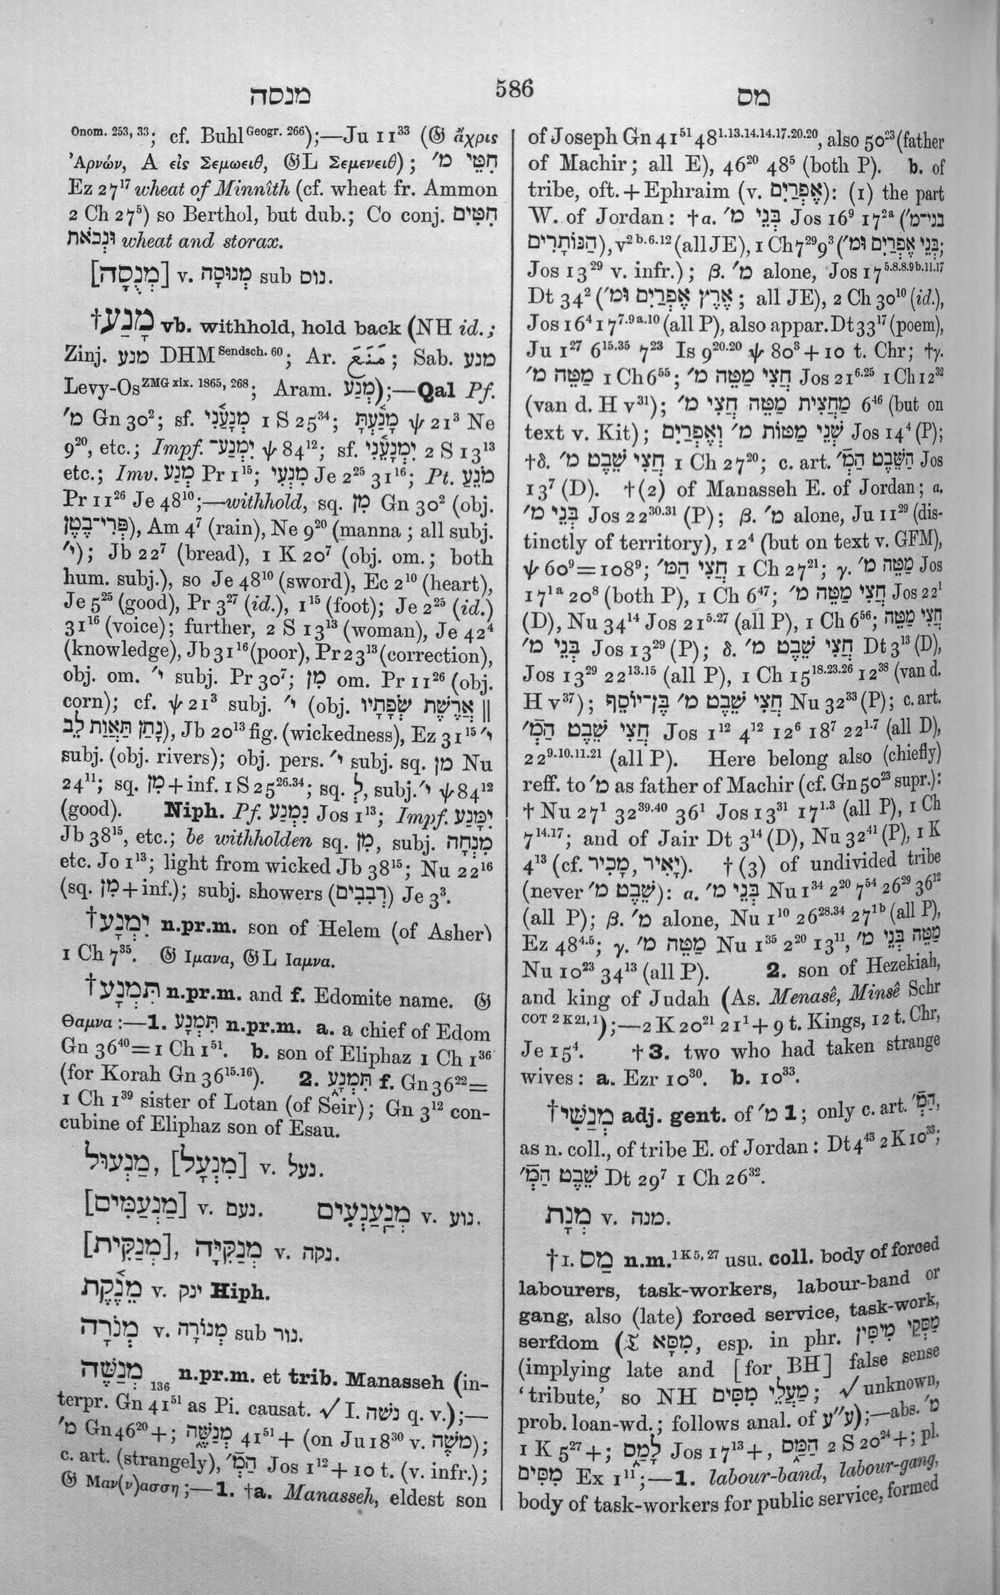 מנסה 586 מס
Onom. 253, 33; cf. Buhl Geogr. 266);—Ju 11³³ (𝔊 ἄχρις
Ἀρνών, A εἰς Σεμωειθ, 𝔊L Σεμενειθ); חִטֵּי מ׳
Ez 27¹⁷ wheat of Minnîth (cf. wheat fr. Ammon
2 Ch 27⁵) so Berthol, but dub.; Co conj. חִטִּים
וּנְכֹאת wheat and storax.
[מְנֻסָה] v. מְנוּסָה sub נוס.
†מָנַע vb. withhold, hold back (NH id.;
Zinj. מנע DHM Sendsch. 60; Ar. مَنَعَ; Sab. מנע
Levy-Os ZMG xix. 1865, 268; Aram. מְנַע);—Qal Pf.
מ׳ Gn 30²; sf. מְנָעַנִי 1 S 25³⁴; מָנַעְתָּ ψ 21³ Ne
9²⁰, etc.; Impf. יִמְנַע־ ψ 84¹²; sf. יִמְנָעֵנִי 2 S 13¹³
etc.; Imv. מְנַע Pr 1¹⁵; מִנְעִי Je 2²⁵ 31¹⁶; Pt. מֹנֵעַ
Pr 11²⁶ Je 48¹⁰;—withhold, sq. מִן Gn 30² (obj.
פְּרִי־בֶטֶן), Am 4⁷ (rain), Ne 9²⁰ (manna; all subj.
י״); Jb 22⁷ (bread), 1 K 20⁷ (obj. om.; both
hum. subj.), so Je 48¹⁰ (sword), Ec 2¹⁰ (heart),
Je 5²⁵ (good), Pr 3²⁷ (id.), 1¹⁵ (foot); Je 2²⁵ (id.)
31¹⁶ (voice); further, 2 S 13¹³ (woman), Je 42⁴
(knowledge), Jb 31¹⁶ (poor), Pr 23¹³ (correction),
obj. om. י״ subj. Pr 30⁷; מִן om. Pr 11²⁶ (obj.
corn); cf. ψ 21³ subj. י״ (obj. אֲרֶשֶׁת שְׂפָתָיו ||
נָתַן תַּאֲוַת לֵב), Jb 20¹³ fig. (wickedness), Ez 31¹⁵ י״
subj. (obj. rivers); obj. pers. י״ subj. sq. מִן Nu
24¹¹; sq. מִן + inf. 1 S 25²⁶·³⁴; sq. לְ, subj. י״ ψ 84¹²
(good). Niph. Pf. נִמְנַע Jos 1¹³; Impf. יִמָּנַע
Jb 38¹⁵, etc.; be withholden sq. מִן, subj. מִנְחָה
etc. Jo 1¹³; light from wicked Jb 38¹⁵; Nu 22¹⁶
(sq. מִן + inf.); subj. showers (רְבִבִים) Je 3³.
†יִמְנָע n.pr.m. son of Helem (of Asher)
1 Ch 7³⁵. 𝔊 Ιμανα, 𝔊L Ιαμνα.
†תִּמְנָע n.pr.m. and f. Edomite name. 𝔊
Θαμνα:—1. תִּמְנָע n.pr.m. a. a chief of Edom
Gn 36⁴⁰ = 1 Ch 1⁵¹. b. son of Eliphaz 1 Ch 1³⁶
(for Korah Gn 36¹⁵·¹⁶). 2. תִּמְנָע f. Gn 36²² =
1 Ch 1³⁹ sister of Lotan (of Seir); Gn 3¹² con-
cubine of Eliphaz son of Esau.
מַנְעוּל, [מִנְעָל] v. נעל.
[מַנְעַמִּים] v. נעם. מְנַעַנְעִים v. נוע.
[מְנַקִּית], מְנַקִּיָּה v. נקה.
מֵנֶקֶת v. ינק Hiph.
מְנֹרָה v. מְנוֹרָה sub נור.
מְנַשֶּׁה 136 n.pr.m. et trib. Manasseh (in-
terpr. Gn 41⁵¹ as Pi. causat. √ I. נשׁה q. v.);—
מ׳ Gn 46²⁰ +; מְנַשֶּׁה 41⁵¹ + (on Ju 18³⁰ v. מֹשֶׁה);
c. art. (strangely), הַמְּ׳ Jos 1¹² + 10 t. (v. infr.);
𝔊 Μαν(ν)ασση;—1. †a. Manasseh, eldest son
of Joseph Gn 41⁵¹ 48¹·¹³·¹⁴·¹⁴·¹⁷·²⁰·²⁰, also 50²³ (father
of Machir; all E), 46²⁰ 48⁵ (both P). b. of
tribe, oft. + Ephraim (v. אֶפְרַיִם): (1) the part
W. of Jordan: †α. בְּנֵי מ׳ Jos 16⁹ 17²ᵃ (בני־מ׳
הַנּוֹתָרִים), v²ᵇ·⁶·¹² (all JE), 1 Ch 7²⁹ 9³ (בְּנֵי אֶפְרַיִם וּמ׳;
Jos 13²⁹ v. infr.); β. מ׳ alone, Jos 17⁵·⁸·⁸·⁹ᵇ·¹¹·¹⁷
Dt 34² (אֶרֶץ אֶפְרַיִם וּמ׳; all JE), 2 Ch 30¹⁰ (id.),
Jos 16⁴ 17⁷·⁹ᵃ·¹⁰ (all P), also appar. Dt 33¹⁷ (poem),
Ju 1²⁷ 6¹⁵·³⁵ 7²³ Is 9²⁰·²⁰ ψ 80³ + 10 t. Chr; †γ.
מַטֵּה מ׳ 1 Ch 6⁵⁵; חֲצִי מַטֵּה מ׳ Jos 21⁶·²⁵ 1 Ch 12³²
(van d. H v³¹); מַחֲצִית מַטֵּה חֲצִי מ׳ 6⁴⁶ (but on
text v. Kit); שְׁנֵי מַטּוֹת מ׳ וְאֶפְרַיִם Jos 14⁴ (P);
†δ. חֲצִי שֵׁבֶט מ׳ 1 Ch 27²⁰; c. art. הַשֵּׁבֶט הַמְּ׳ Jos
13⁷ (D). †(2) of Manasseh E. of Jordan; α.
בְּנֵי מ׳ Jos 22³⁰·³¹ (P); β. מ׳ alone, Ju 11²⁹ (dis-
tinctly of territory), 12⁴ (but on text v. GFM),
ψ 60⁹ = 108⁹; חֲצִי הַמּ׳ 1 Ch 27²¹; γ. מַטֵּה מ׳ Jos
17¹ᵃ 20⁸ (both P), 1 Ch 6⁴⁷; חֲצִי מַטֵּה מ׳ Jos 22¹
(D), Nu 34¹⁴ Jos 21⁵·²⁷ (all P), 1 Ch 6⁵⁶; חֲצִי מַטֵּה
בְּנֵי מ׳ Jos 13²⁹ (P); δ. חֲצִי שֵׁבֶט מ׳ Dt 3¹³ (D),
Jos 13²⁹ 22¹³·¹⁵ (all P), 1 Ch 5¹⁸·²³·²⁶ 12³⁸ (van d.
H v³⁷); חֲצִי שֵׁבֶט מ׳ בֶּן־יוֹסֵף Nu 32³³ (P); c. art.
חֲצִי שֵׁבֶט הַמְּ׳ Jos 1¹² 4¹² 12⁶ 18⁷ 22¹·⁷ (all D),
22⁹·¹⁰·¹¹·²¹ (all P). Here belong also (chiefly)
reff. to מ׳ as father of Machir (cf. Gn 50²³ supr.):
† Nu 27¹ 32³⁹·⁴⁰ 36¹ Jos 13³¹ 17¹·³ (all P), 1 Ch
7¹⁴·¹⁷; and of Jair Dt 3¹⁴ (D), Nu 32⁴¹ (P), 1 K
4¹³ (cf. יָאִיר, מָכִיר). †(3) of undivided tribe
(never שֵׁבֶט מ׳): α. בְּנֵי מ׳ Nu 1³⁴ 2²⁰ 7⁵⁴ 26²⁹ 36¹²
(all P); β. מ׳ alone, Nu 1¹⁰ 26²⁸·³⁴ 27¹ᵇ (all P),
Ez 48⁴·⁵; γ. מַטֵּה מ׳ Nu 1³⁵ 2²⁰ 13¹¹, מַטֵּה בְּנֵי מ׳
Nu 10²³ 34¹³ (all P). 2. son of Hezekiah,
and king of Judah (As. Menasê, Minsê Schr
COT 2 K 21, 1);—2 K 20²¹ 21¹ + 9 t. Kings, 12 t. Chr,
Je 15⁴. †3. two who had taken strange
wives: a. Ezr 10³⁰. b. 10³³.
†מְנַשִּׁי adj. gent. of מ׳ 1; only c. art. הַמְּ׳,
as n. coll., of tribe E. of Jordan: Dt 4⁴³ 2 K 10³³;
שֵׁבֶט הַמְּ׳ Dt 29⁷ 1 Ch 26³².
מְנָת v. מנה.
†I. מַס n.m. 1 K 5, 27 usu. coll. body of forced
labourers, task-workers, labour-band or
gang, also (late) forced service, task-work,
serfdom (𝔗 מִסָּא, esp. in phr. מַסְּקֵי מִיסִין
(implying late and [for BH] false sense
‘tribute,’ so NH מַעֲלֵי מִסִּים; √ unknown,
prob. loan-wd.; follows anal. of ע״ע);—abs. מ׳
1 K 5²⁷ +; לָמַס Jos 17¹³ +, הַמַּס 2 S 20²⁴ +; pl.
מִסִּים Ex 1¹¹;—1. labour-band, labour-gang,
body of task-workers for public service, formed